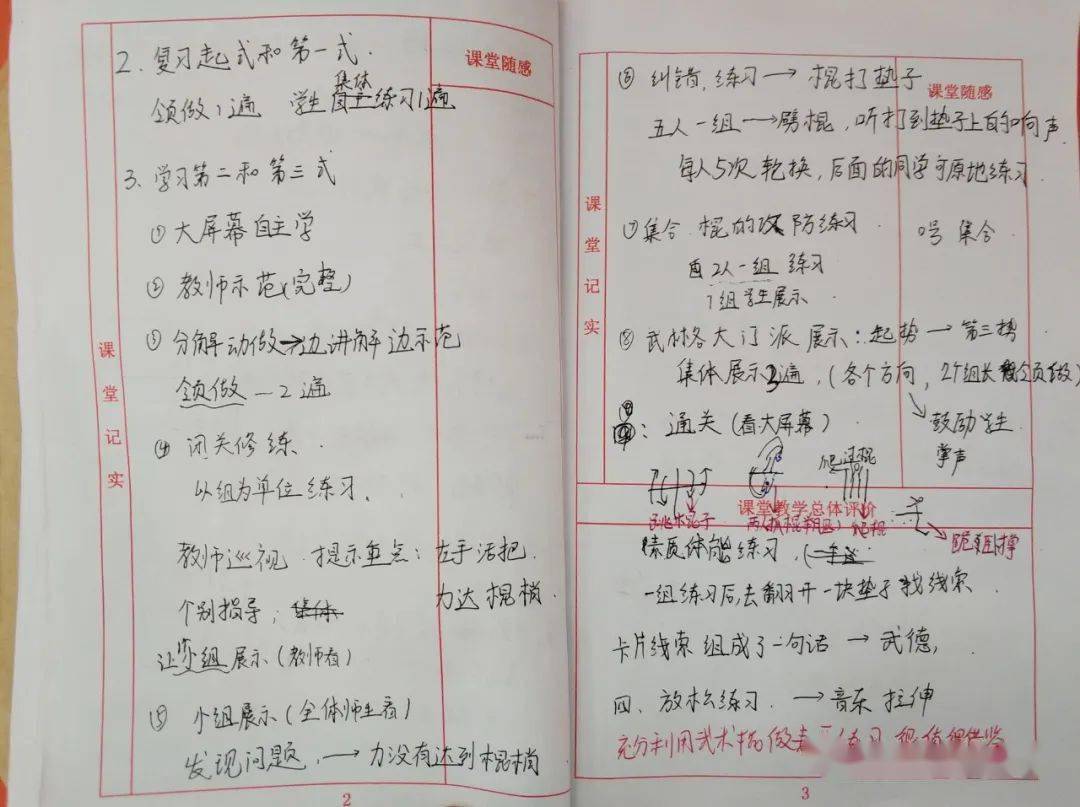 课堂随感
2. 复习起式和第一式.
领做1遍 学生集体练习1遍
3. 学习第二和第三式
① 大屏幕自主学
② 教师示范(完整)
③ 分解动做→边讲解边示范
领做—2遍
④ 闭关修练.
以组为单位练习.
教师巡视 提示重点: 左手活把.
力达棍梢.
个别指导; 集体
让小组展示(教师看)
⑤ 个组展示(全体师生看)
发现问题, → 力没有达到棍梢
课堂记实
2
课堂随感
⑥ 纠错, 练习 → 棍打垫子
五人一组→劈棍, 听打到垫子上的响声.
每人5次轮换, 后面的同学可原地练习.
⑦ 集合 棍的攻防练习. 哨 集合
2人一组 练习
1组学生展示.
⑧ 武林各大门派展示: 起势 → 第三势
集体展示3遍, (各个方向, 2个组长领做)
鼓励学生
掌声
⑨: 通关 (看大屏幕)
课堂记实
课堂教学总体评价
素质体能练习.
一组练习后,去翻开一块垫子找线索.
卡片线索 组成了一句话 → 武德,
四、放松练习. → 音乐 拉伸
充分利用武术棍做
3